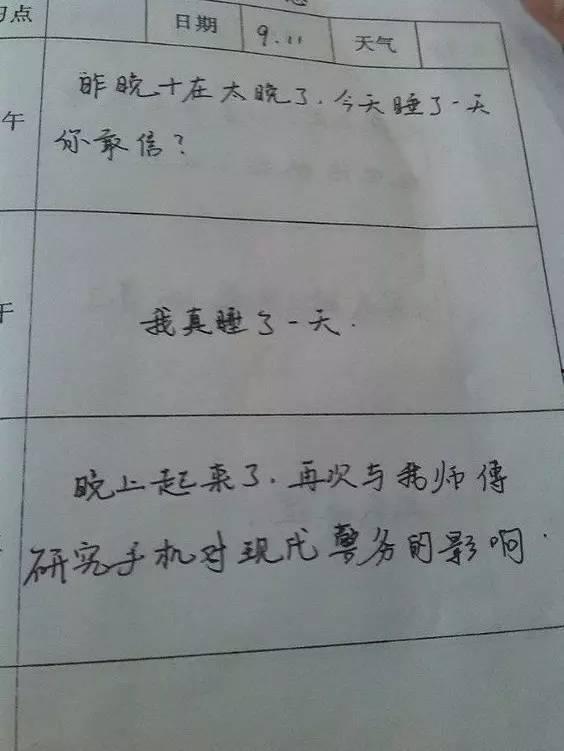 日期 9.11 天气
昨晚十在太晚了.今天睡了一天
午
你敢信?
午
我真睡了一天.
晚上起来了.再次与我师傅
研究手机对现代警务的影响.